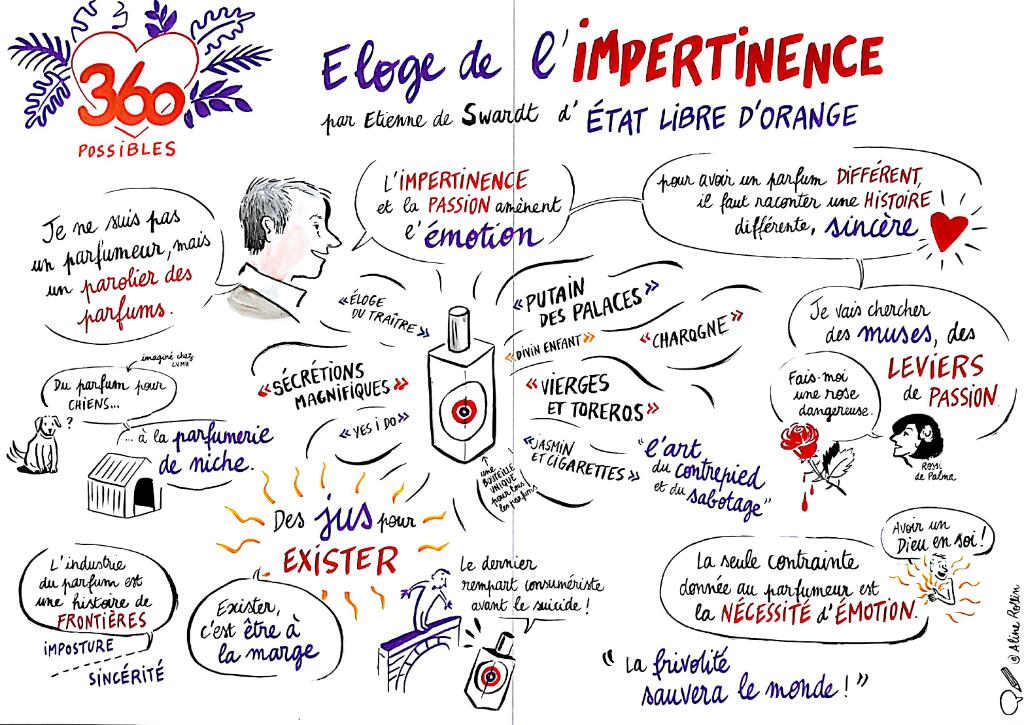 360
POSSIBLES
Eloge de l'IMPERTINENCE
par Etienne de Swardt d'ÉTAT LIBRE D'ORANGE
Je ne suis pas
un parfumeur, mais
un parolier des
parfums.
L'IMPERTINENCE
et la PASSION amènent
l'émotion
pour avoir un parfum DIFFÉRENT,
il faut raconter une HISTOIRE
différente, sincère
Je vais chercher
des muses, des
LEVIERS
de PASSION
Fais-moi
une rose
dangereuse.
Rossi
de Palma
«ÉLOGE
DU TRAÎTRE»
«SÉCRÉTIONS
MAGNIFIQUES»
«YES I DO»
«PUTAIN
DES PALACES»
«DIVIN ENFANT»
«CHAROGNE»
«VIERGES
ET TOREROS»
«JASMIN
ET CIGARETTES»
une
BOUTEILLE
UNIQUE
pour tous
les parfums
"l'art
du contrepied
et du
sabotage"
imaginé chez
LVMH
Du parfum pour
CHIENS...
?
... à la parfumerie
de niche.
Des jus pour
EXISTER
L'industrie
du parfum est
une histoire de
FRONTIÈRES
IMPOSTURE
SINCÉRITÉ
Exister,
c'est être à
la marge
Le dernier
rempart consumériste
avant le suicide!
La seule contrainte
donnée au parfumeur est
la NÉCESSITÉ d'ÉMOTION.
Avoir un
Dieu en soi!
"La frivolité
sauvera le monde!"
© Aline Rollin